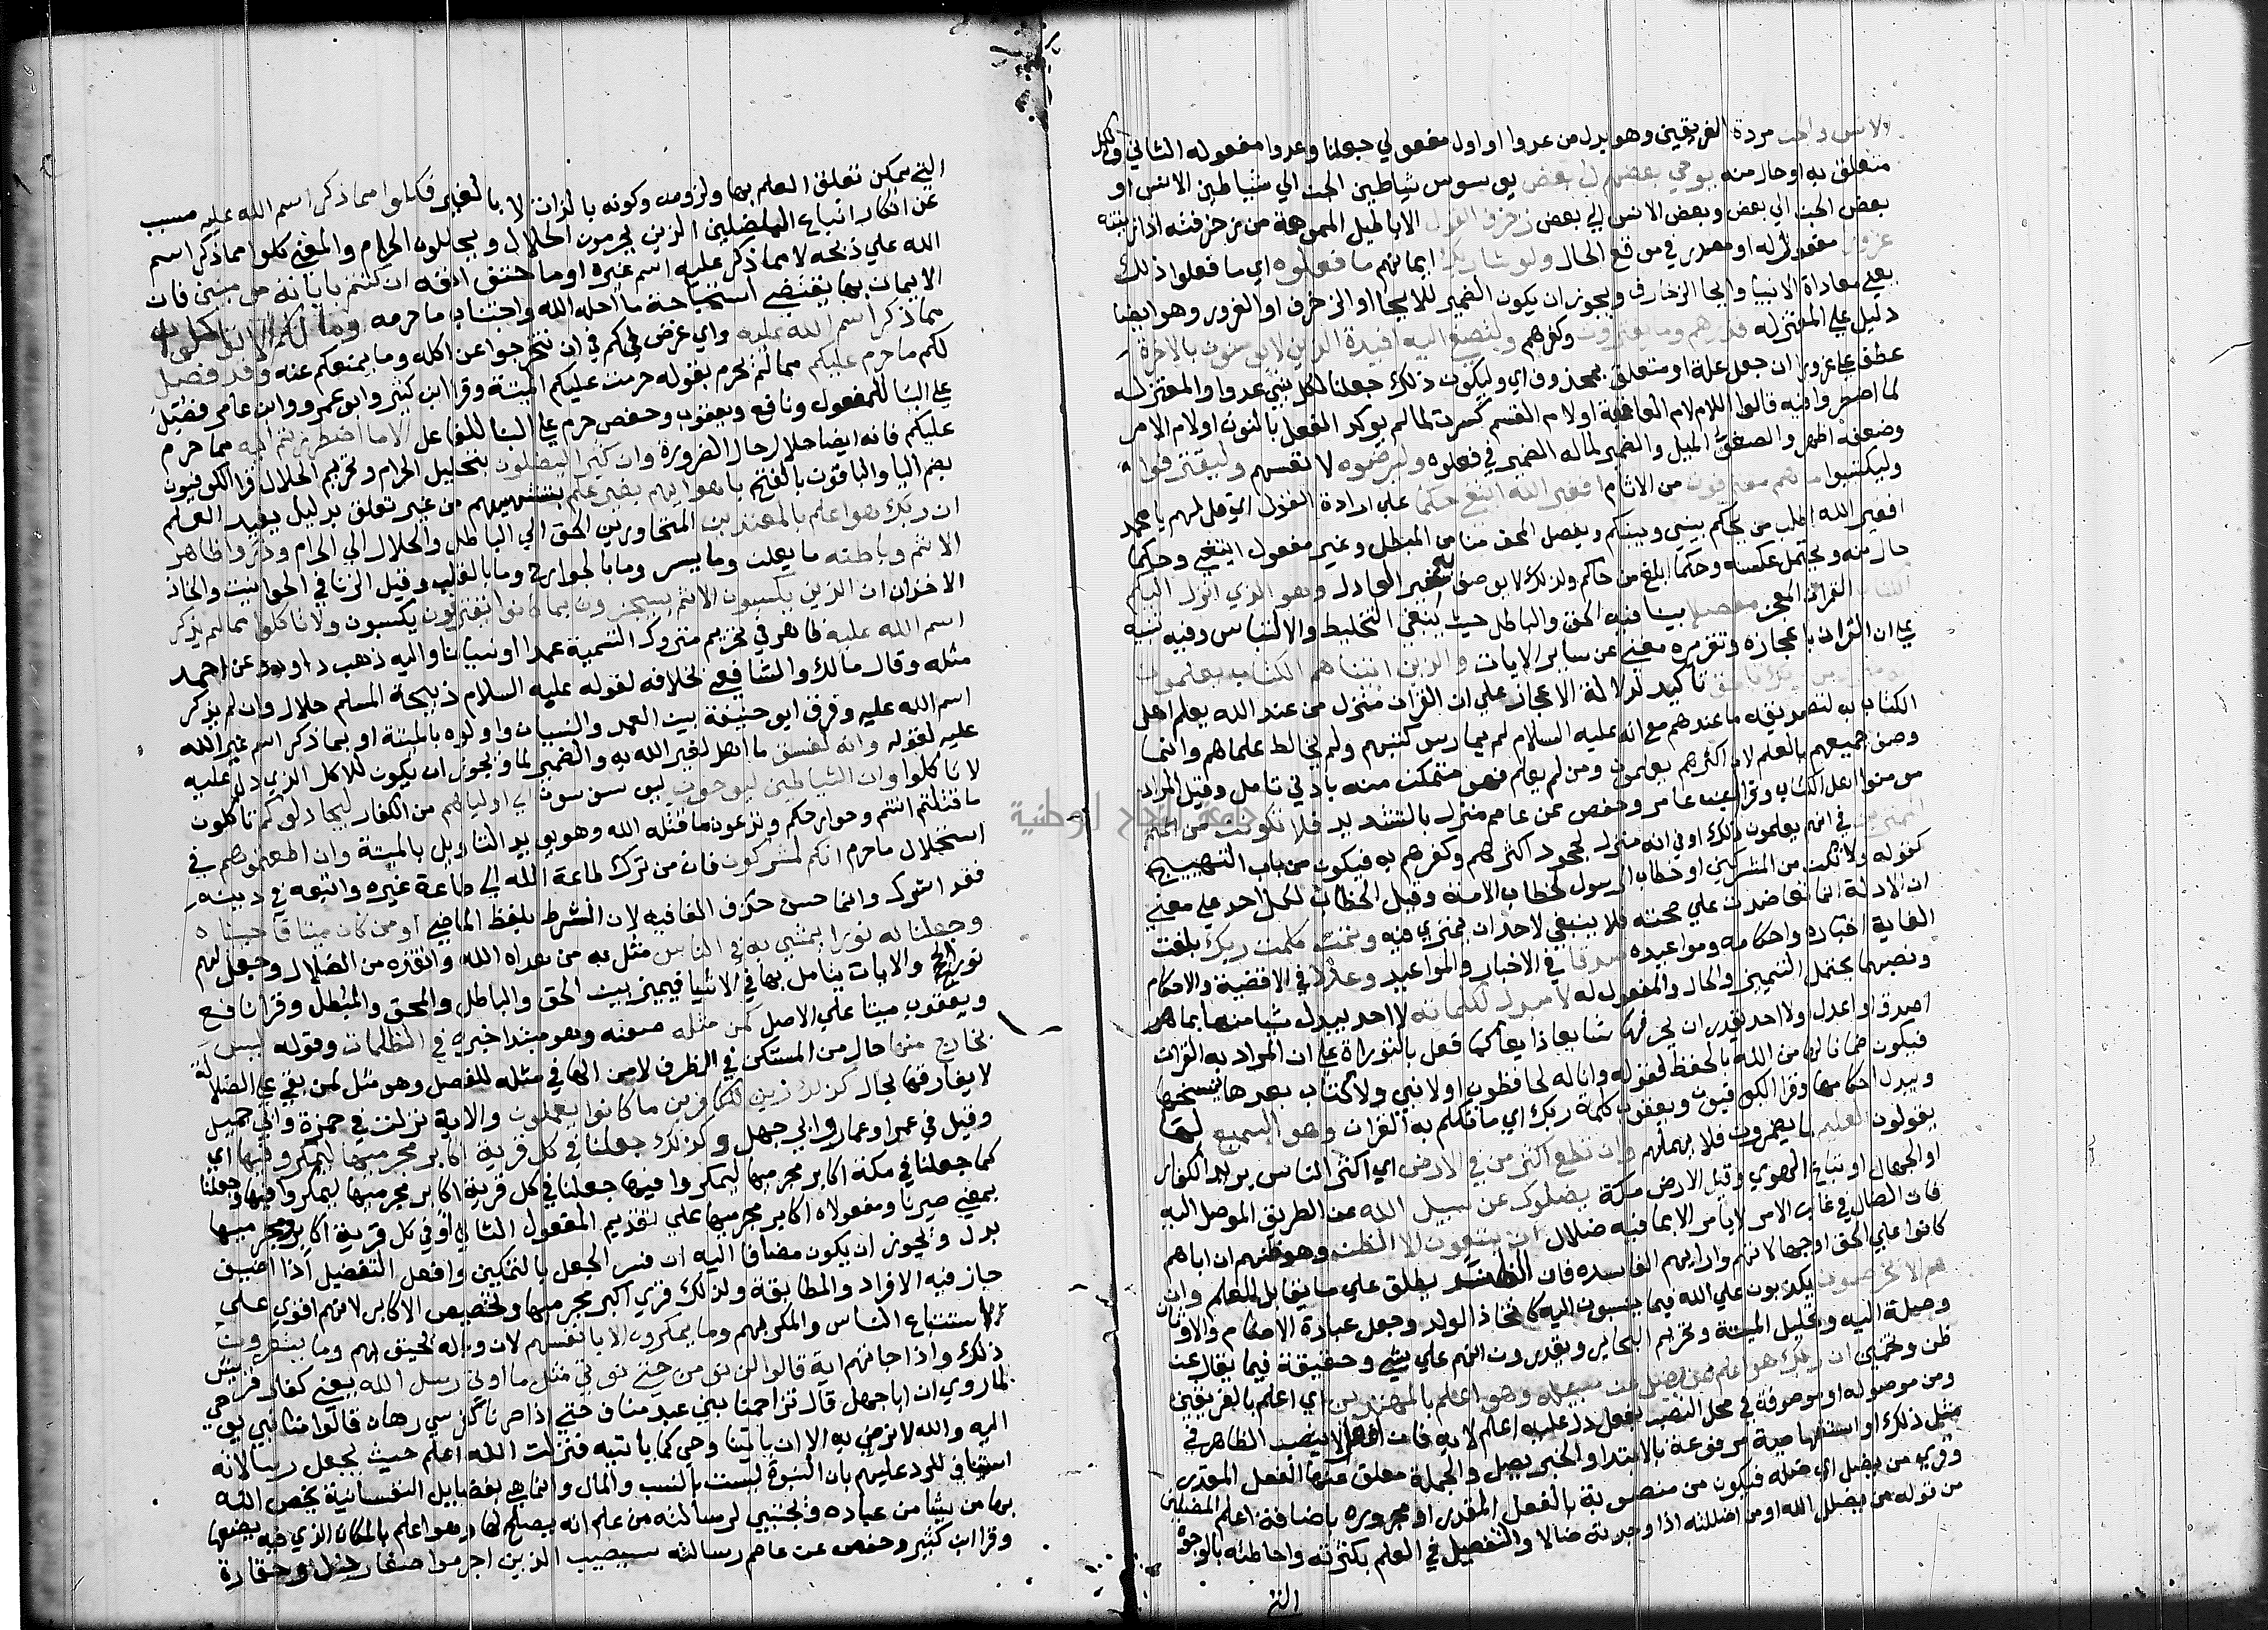 الانس والجن مردة الفريقين وهو بدل من عدوا او اول مفعولي جعلنا وعدوا مفعوله الثاني ولكل
متعلق به او حال منه يوحي بعضهم الي بعض يوسوس شياطين الجن الي شياطين الانس او
بعض الجن الي بعض وبعض الانس الي بعض زخرف القول الاباطيل المموهة من زخرفته اذا زينته
غرورا مفعول له او مصدر في موقع الحال ولو شا ربك ايمانهم ما فعلوه اي ما فعلوا ذلك
يعني معاداة الانبيا وايحا الزخارف ويجوز ان يكون الضمير للايحا او الزخرف او الغرور وهو ايضا
دليل علي المعتزله فذرهم وما يفترون وكفرهم ولتصغي اليه افيدة الذين لا يومنون بالاخرة
عطف علي غرورا ان جعل علة او متعلق بمحذوف اي وليكون ذلك جعلنا لكل نبي عدوا والمعتزله
لما اضطروا فيه قالوا اللام لام العاقبة او لام القسم كسرت لما لم يوكد الفعل بالنون او لام الامر
وضعفه اظهر والصغو الميل والضمير لماله الضمير في فعلوه وليرضوه لانفسهم وليقترفوا
وليكسبوا ما هم مقترفون من الاثام افغير الله ابتغي حكما علي ارادة القول اي قل لهم يا محمد
افغير الله اطلب من يحكم بيني وبينكم ويفصل المحق منا من المبطل وغير مفعول ابتغي وحكما
حال منه ويحتمل عكسه وحكما ابلغ من حاكم ولذلك لا يوصف به غير العادل وهو الذي انزل اليكم
الكتاب القران المعجز مفصلا بينا فيه الحق والباطل حيث ينفي التخليط والالتباس وفيه تنبيه
علي ان القران باعجازه وتقريره مغني عن ساير الايات والذين اتيناهم الكتاب يعلمون
انه منزل من ربك بالحق تاكيد لدلالة الاعجاز علي ان القران منزل من عند الله يعلم اهل
الكتاب به لتصديقه ما عندهم مع انه عليه السلام لم يمارس كتبهم ولم يخالط علماهم وانما
وصف جميعهم بالعلم لان اكثرهم يعلمون ومن لم يعلم فهو متمكن منه بادني تامل وقيل المراد
مومنوا اهل الكتاب وقرا ابن عامر وحفص عن عاصم منزل بالتشديد فلا تكونن من الممترين
في انهم يعلمون ذلك او في انه منزل لجحود اكثرهم وكفرهم به فيكون من باب التهييج
كقوله ولا تكن من المشركين او خطاب الرسول لخطاب الامة وقيل الخطاب لكل احد علي معني
ان الادلة لما تعاضدت علي صحته فلا ينبغي لاحد ان يمتري فيه وتمت كلمت ربك بلغت
الغاية اخباره واحكامه ومواعيده صدقا في الاخبار والمواعيد وعدلا في الاقضية والاحكام
ونصبهما يحتمل التمييز والحال والمفعول له لا مبدل لكلماته لا احد يبدل شيا منها بما هو
اصدق او اعدل ولا احد يقدر ان يحرفها شايعا ذايعا كما فعل بالتوراة علي ان المراد به القران
فيكون ضمانا لها من الله بالحفظ كقوله وانا له لحافظون او لا نبي ولا كتاب بعدها ينسخها
ويبدل احكامها وقرا الكوفيون ويعقوب كلمة ربك اي ما تكلم به القران وهو السميع لما
يقولون العليم بما يضمرون فلا يهملهم وان تطع اكثر من في الارض اي اكثر الناس يريد الكفار
او الجهال او تباع الهوي وقيل الارض مكة يضلوك عن سبيل الله عن الطريق الموصل اليه
فان الضال في غالب الامر لا يامر الا بما فيه ضلال ان يتبعون الا الظن وهو ظنهم ان اباهم
كانوا علي الحق او جهالاتهم واراهم الفاسده فان الظن يطلق علي ما يقابل العلم وان
هم الا يخرصون يكذبون علي الله فيما ينسبون اليه كاتخاذ الولد وجعل عبادة الاصنام والاوثان
وصيلة اليه وتحليل الميتة وتحريم البحاير ويقدرون انهم علي شي وحقيقة فيما يقال عن
ظن وتخمين ان ربك هو اعلم من يضل عن سبيله وهو اعلم بالمهتدين اي اعلم بالفريقين
ومن موصوله او موصوفة في محل النصب بفعل دل عليه اعلم لا به فان افعل لا ينصب الظاهر في
مثل ذلك او استفهامية مرفوعة بالابتدا والخبر يضل والجملة معلق عنها الفعل المقدر
وقري من يضل اي يضله فيكون من منصوبة بالفعل المقدر او مجروره باضافة اعلم المضلين
من قوله من يضلل الله او من اضللته اذا وجدته ضالا والتفضيل في العلم بكثرته واحاطته بالوجوه
التي
التي يمكن تعلق العلم بها ولزومه وكونه بالذات لا بالغير فكلوا مما ذكر اسم الله عليه مسبب
عن انكار اتباع المضلين الذين يحرمون الحلال ويحللون الحرام والمعني كلوا مما ذكر اسم
الله علي ذبحه لا مما ذكر عليه اسم غيره او مات حتف انفه ان كنتم باياته مومنين فان
الايمان بها يقتضي استباحة ما احله الله واجتناب ما حرمه وما لكم الا تاكلوا
مما ذكر اسم الله عليه واي غرض لكم في ان تتحرجوا عن اكله وما يمنعكم عنه وقد فصل
لكم ما حرم عليكم مما لم يحرم بقوله حرمت عليكم الميتة وقرا ابن كثير وابو عمرو وابن عامر فصل
علي البنا للمفعول ونافع ويعقوب وحفص حرم علي البنا للفاعل الا ما اضطررتم اليه مما حرم
عليكم فانه ايضا حلال حال الضرورة وان كثيرا ليضلون بتحليل الحرام وتحريم الحلال قرا الكوفيون
بضم اليا والباقون بالفتح باهوايهم بغير علم بتشهيهم من غير تعلق بدليل يفيد العلم
ان ربك هو اعلم بالمعتدين المتجاوزين الحق الي الباطل والحلال الي الحرام وذروا ظاهر
الاثم وباطنه ما يعلن وما يسر وما بالجوارح وما بالقلب وقيل الزنا في الحوانيت واتخاذ
الاخدان ان الذين يكسبون الاثم سيجزون بما كانوا يقترفون يكسبون ولا تاكلوا مما لم يذكر
اسم الله عليه ظاهر في تحريم متروك التسمية عمدا او نسيانا واليه ذهب داود وعن احمد
مثله وقال مالك والشافعي بخلافه لقوله عليه السلام ذبيحة المسلم حلال وان لم يذكر
اسم الله عليه وفرق ابو حنيفة بين العمد والنسيان واولوه بالميتة او بما ذكر اسم غير الله
عليه لقوله وانه لفسق ما اهل لغير الله به والضمير لما ويجوز ان يكون للاكل الذي دل عليه
لا تاكلوا وان الشياطين ليوحون ليوسوسون الي اولياهم من الكفار ليجادلوكم تاكلون
ما قتلتم انتم وجوارحكم وتدعون ما قتله الله وهو يويد التاويل بالميتة وان اطعتموهم في
استحلال ما حرم انكم لمشركون فان من ترك طاعة الله الي طاعة غيره واتبعه في دينه
فقد اشرك وانما حسن حذف الفا فيه لان الشرط بلفظ الماضي او من كان ميتا فاحييناه
وجعلنا له نورا يمشي به في الناس مثل به من هداه الله وانقذه من الضلال وجعل لهم
نور الحجج والايات يتامل بها في الاشيا فيميز بين الحق والباطل والمحق والمبطل وقرا نافع
ويعقوب ميتا علي الاصل كمن مثله صفته وهو مبتدا خبره في الظلمات وقوله ليس
بخارج منها حال من المستكن في الظرف لا من الها في مثله للفصل وهو مثل لمن بقي علي الضلالة
لا يفارقها بحال كذلك زين للكافرين ما كانوا يعملون والاية نزلت في حمزة وابي جهل
وقيل في عمر او عمار وابي جهل وكذلك جعلنا في كل قرية اكابر مجرميها ليمكروا فيها اي
كما جعلنا في مكة اكابر مجرميها ليمكروا فيها جعلنا في كل قرية اكابر مجرميها ليمكروا فيها وجعلنا
بمعني صيرنا ومفعولاه اكابر مجرميها علي تقديم المفعول الثاني او في كل قرية اكابر ومجرميها
بدل ويجوز ان يكون مضافا اليه ان فسر الجعل بالتمكين وافعل التفضيل اذا اضيف
جاز فيه الافراد والمطابقة ولذلك قري اكبر مجرميها وتخصيص الاكابر لانهم اقوي علي
استتباع الناس والمكر بهم وما يمكرون الا بانفسهم لان وباله يحيق بهم وما يشعرون
ذلك واذا جاتهم اية قالوا لن نومن حتي نوتي مثل ما اوتي رسل الله يعني كفار قريش
لما روي ان ابا جهل قال تزاحمنا بني عبد مناف حتي اذا صرنا كفرسي رهان قالوا منا نبي يوحي
اليه والله لا نرضي به الا ان ياتينا وحي كما ياتيه فنزلت الله اعلم حيث يجعل رسالاته
استيناف للرد عليهم بان النبوة ليست بالنسب والمال وانما هي بفضايل النفسانية يخص الله
بها من يشا من عباده فيجتبي لرسالته من علم انه يصلح لها وهو اعلم بالمكان الذي فيه يضعها
وقرا ابن كثير وحفص عن عاصم رسالته سيصيب الذين اجرموا صغار ذل وحقارة
جامعة النجاح الوطنية